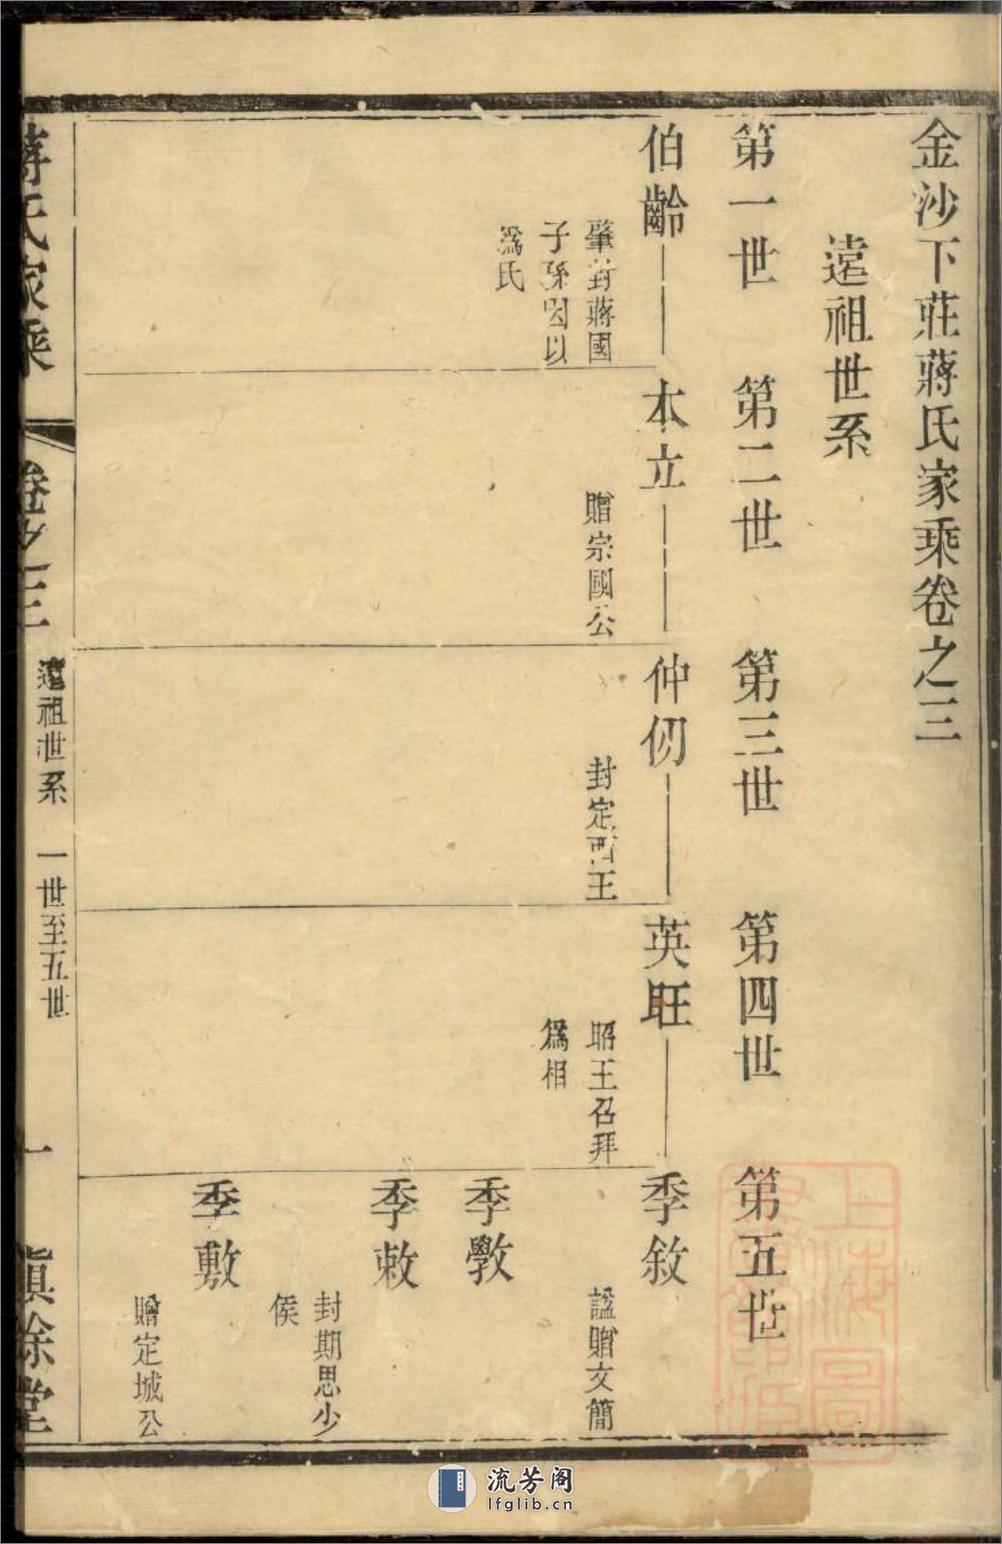 金沙下莊蔣氏家乘卷之三
遠祖世系
第一世
第二世
第三世
第四世
第五世
伯齡
肇封蔣國
子孫因以
爲氏
本立
贈宗國公
仲仞
封定西王
英旺
昭王召拜
爲相
季敘
諡贈文簡
季斆
季敕
封期思少
侯
季敷
贈定城公
蔣氏家乘
卷之三
遠祖世系
一世至五世
一
慎餘堂
上海圖
書館藏
流芳阁
lfglib.cn